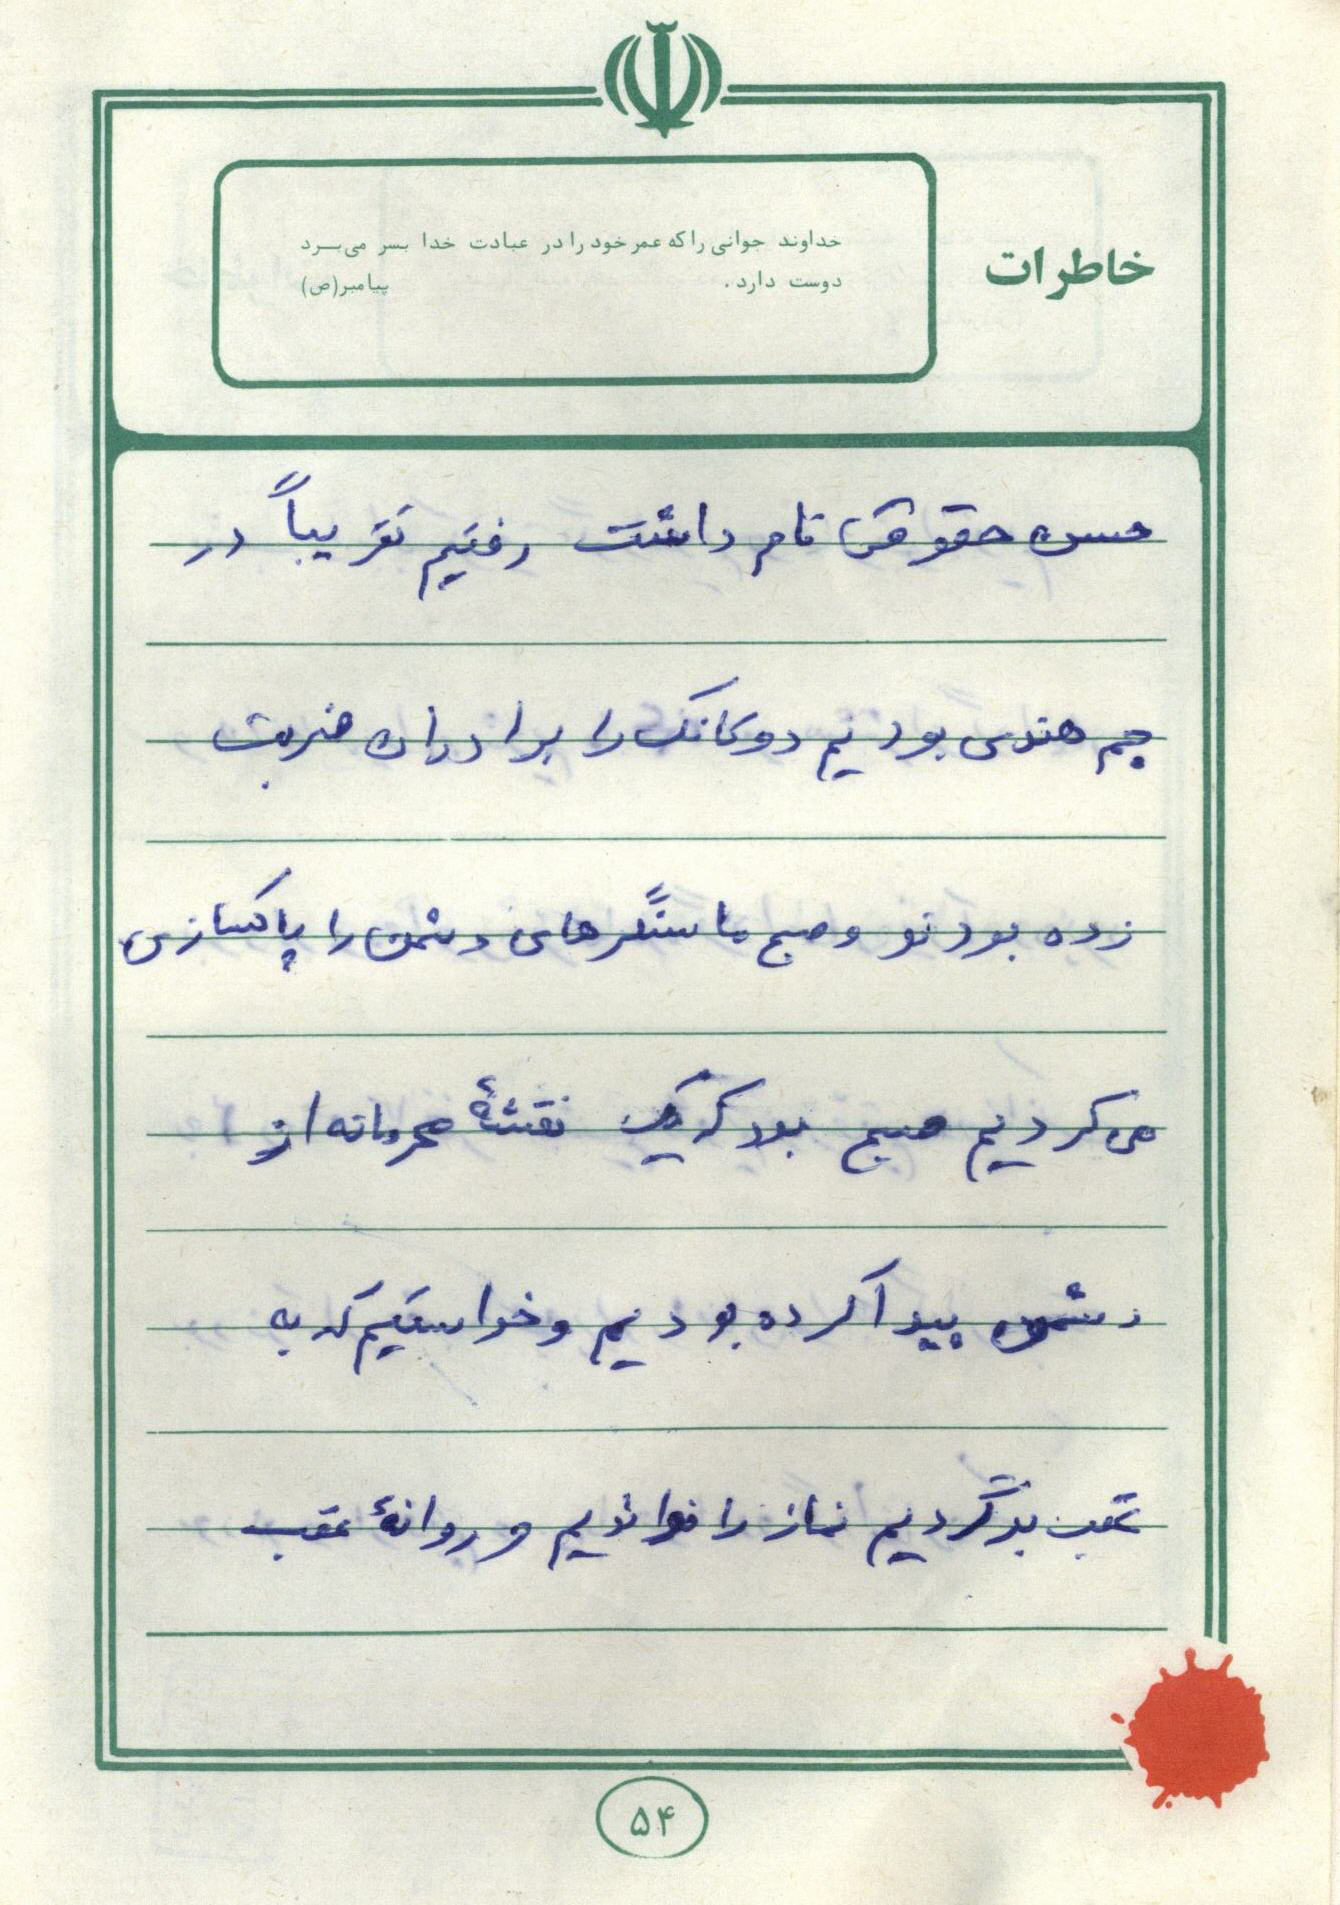 خاطرات
خداوند جوانی را که عمر خود را در عبادت خدا بسر می‌برد
دوست دارد. پیامبر(ص)
حسن حقوقی نام داشت رفتیم تقریباً در
چم هندی بودیم دو تانک را برادران ضربت
زده بودند و صبح ما سنگرهای دشمن را پاکسازی
می کردیم صبح بود که یک نقشهٔ محرمانه از
دشمن پیدا کرده بودیم و خواستیم که به
عقب برگردیم نماز را خواندیم و روانهٔ عقب
۵۴